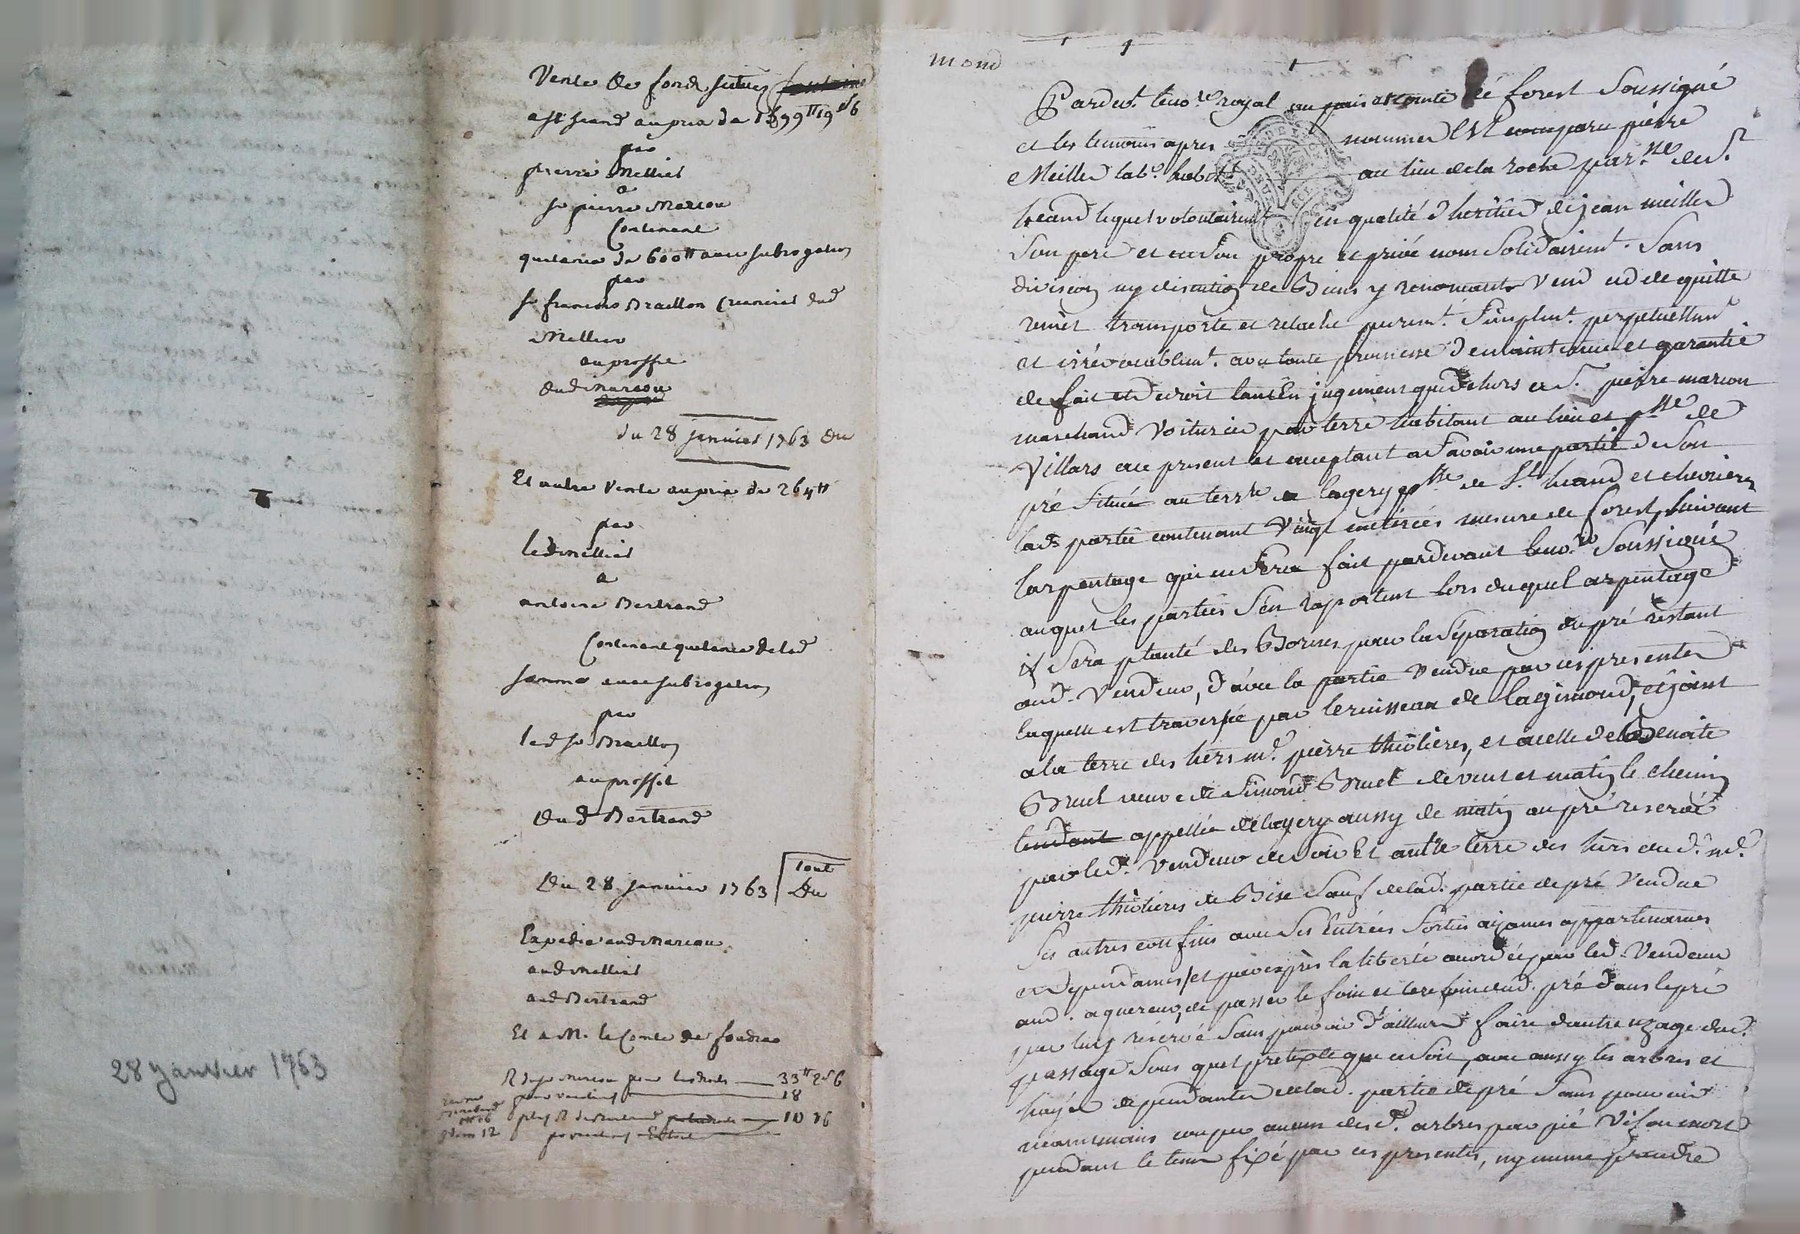 28 janvier 1763
Vente de fond scitué
a St heand au prix de 1399# 19s 6
par
pierre Mellier
a
Sr pierre Marcou
Contenant
quitance de 600# avec subrogation
par
Sr francois Braillon Creancier dud
Mellier
au proffit
dud Marcou
du 28 janvier 1763 du
Et autre Vente au prix de 264#
par
led Mellier
a
antoine Bertrand
Contenant quitance de lad
somme avec subrogation
par
led Sr Braillon
au proffit
dud Bertrand
Du 28 janvier 1763
tout
Du
Expedié aud Marcou
aud Mellier
aud Bertrand
Et a M. le Comte de
R du Sr Marcou pour 33# 2s 6
18
plus R de Bertrand 10 16
mond
Pardevt. le nore. royal au païs et comté de forest Soussigné
et les temoins apres nommés Est comparu pierre
Meiller labr. habitt au lieu de la roche parsse de St
heand lequel volontairemt en qualité d'heritier de jean meiller
Son pere et en Son propre et privé nom Solidairemt. Sans
division ny discution de Biens y renonceant Vend cede quitte
remet transporte et relache puremt. Simplemt. perpetuellemt
et irrévocablemt. avec toute promesse de maintenue et garantie
de fait et droit tant En jugement que dehors a Sr. pierre marcou
marchand Voiturier par terre habitant au lieu et psse de
Villars icy present et acceptant a Savoir une partie de Son
pré Situé au terrre de lagery psse de St heand et chevrieres
lade partie contenant Vingt métérées mesure de forest, Suivant
larpentage qui en Sera fait pardevant le nore Soussigné
auquel les parties S'en raportent lors duquel arpentage
il Sera planté des Bornes pour la Séparation du pré restant
aud. Vendeur, d'avec la partie Vendue par ces presentes
laquelle est traversée par le ruisseau de lagimond, et joint
a la terre des hers md. pierre thiolieres, et a celle de Benoite
Bruel veuve de Simond Bruel de vent et matin le chemin
tendant appellée de lagery aussy de matin au pré reservé
par led. Vendeur de Soir Et autre terre des hers dud. md.
pierre thiolieres de Bise Sauf de lad. partie de pré Vendue
Ses autres confins avec Ses Entrées Sorties aizances appartenances
et dependances et par exprès la liberté accordée par led. Vendeur
aud. aquereur, de passer le foin et le refoin dud. pré dans le pré
par luy réservé Sans pouvoir d'ailleurs faire d'autre uzage dud.
passage Sous quel pretexte que ce Soit, avec aussy les arbres et
hayes dependantes de lad. partie de pré Sans pouvoir
neanmoins couper aucun desd. arbres par pié Vif ou mort
pendant le tems fixé par ces presentes, ny meme prendre